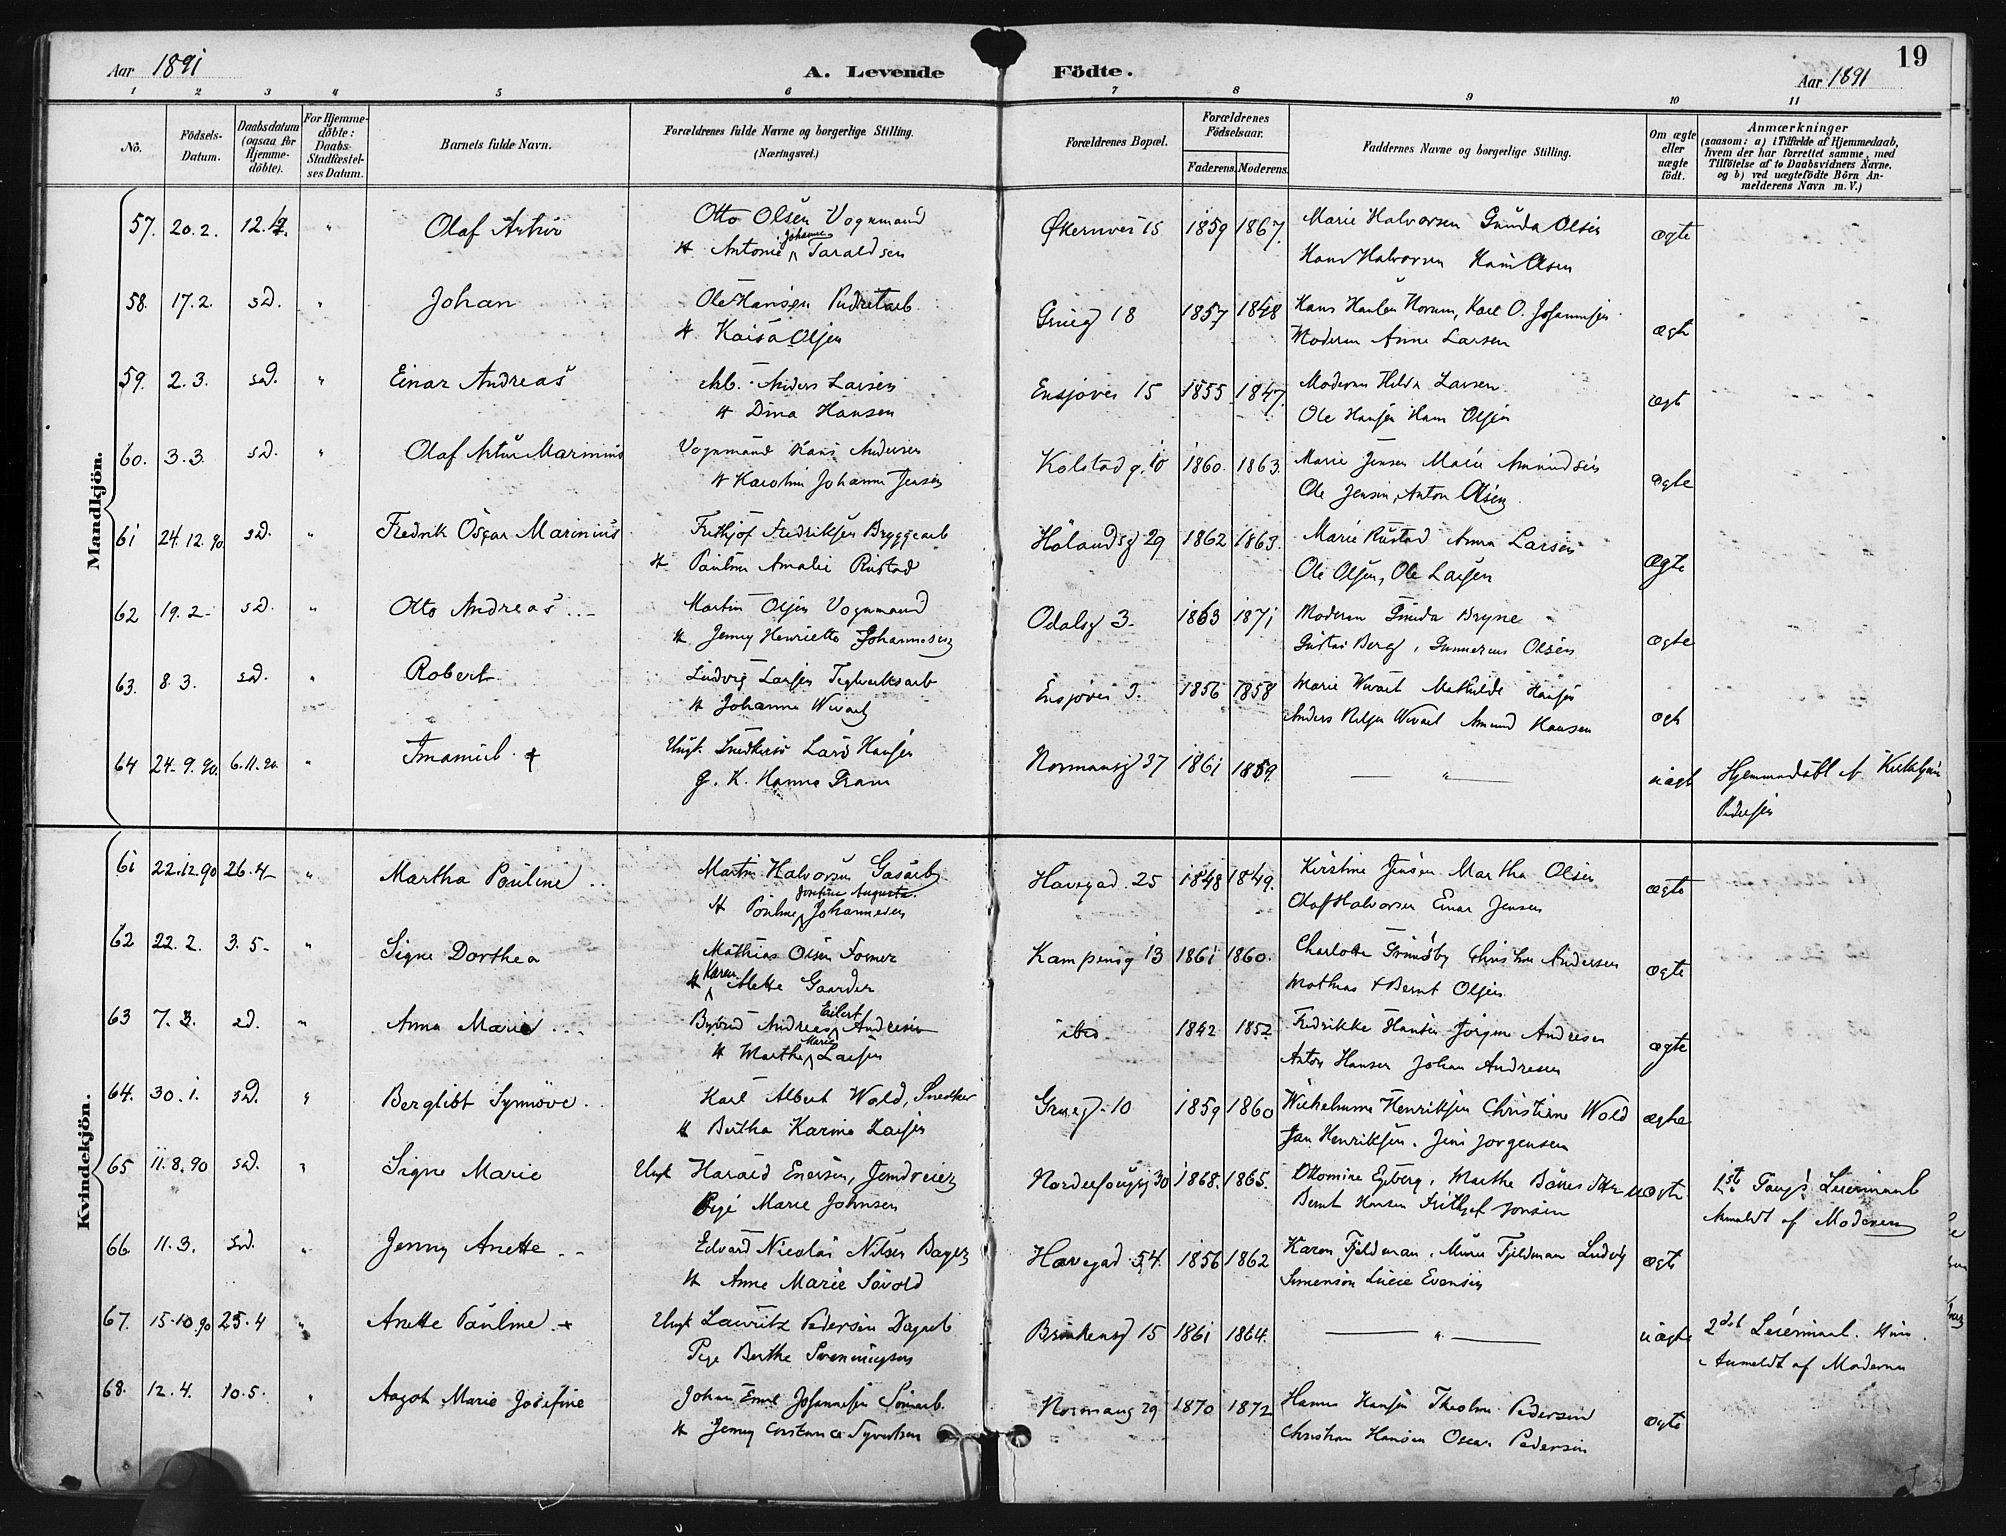 Aar 1891
A. Levende Födte.
19
Aar 1891
1 2 3 4 5 6 7 8 9 10 11
No.
Födsels-Datum.
Daabsdatum (ogsaa for Hjemme-döbte).
For Hjemme-döbte: Daabs-Stadfæstel-ses Datum.
Barnets fulde Navn.
Forældrenes fulde Navne og borgerlige Stilling.
(Næringsvei.)
Forældrenes Bopæl.
Forældrenes Födselsaar.
Faderens. Moderens.
Faddernes Navne og borgerlige Stilling.
Om ægte eller uægte födt.
Anmærkninger
(saasom: a) i Tilfælde af Hjemmedaab, hvem der har forrettet samme, med Tilföielse af to Daabsvidners Navne, og b) ved uægtefödte Börn An-melderens Navn m. V.)
Mandkjön.
57. 20.2. 12. " Olaf Artur Otto Olsen Vognmand Økernvei 15 1859 1867. Marie Halvorsen Gunda Olsen ægte
H Antonie Johanne Taraldsen Hans Halvorsen Hans Olsen
58. 17.2. sd. " Johan Ole Hansen Grueg 18 1857 1848 Hans Karl O. Johannesen ægte
H Kaisa Olsen Moderen Anne Larsen
59. 2.3. sd. " Einar Andreas Arb. Anders Larsen Ensjøvei 15 1855 1847. Moderen Hilda Larsen ægt
H Dina Hansen Ole Hansen Hans Olsen
60. 3.3. sd. " Olaf Artur Marinius Vognmand Hans Andersen Kolstadg. 10 1860. 1863. Marie Jensen Marie Amundsen ægte
H Karolin Johanne Jensen Ole Jensen, Anton Olsen
61 24.12.90. sd. " Fredrik Oscar Marinius Frithjof Fredriksen Bryggearb Hølandsg 29 1862 1863. Marie Rustad Anna Larsen ægte
H Pauline Amalie Rustad Ole Olsen, Ole Larsen
62 19.2 sd. " Otto Andreas Martin Olsen Vognmand Odalsg 3. 1863 1871 Moderen Gunda Bryne ægte
H Jenny Henriette Johannesen Gustav Berg, Gunnerius Olsen
63. 8.3. sd. " Robert Ludvig Larsen Teglverksarb Ensjøvei 1856 1858 Marie Mathilde Hansen ægt
H Johanne Anders Amund Hansen
64 24.9.90. 6.11.90. " Imanuel + Ungk. Snedkersv Lars Hansen Normansg 37 1861 1859. — " — uægt Hjemmedøbt af
P. K. Hanna Pedersen
Kvindekjön.
61 22.12.90 26.4 " Martha Pauline Martin Halvorsen Gasarb Havegad. 25 1848 1849. Kirstine Jensen Martha Olsen ægte
H Pauline Augusta Johannesen Olaf Halvorsen Einar Jensen
62 22.2. 3.5 " Signe Dorthea Mathias Olsen Former Kampensg 13 1861 1860. Charlotte Christine Andersen ægte
H Karen Mette Gaarder Mathias & Bernt Olsen
63 7.3. sd. " Anna Marie Bybud Andreas Eilert Andresen ibid 1842 1852 Fredrikke Hansen Jørgine Andresen ægte
H Marthe Marie Larsen Anton Hansen Johan Andresen
64. 30.1. sd. " Bergliot Synnøve Karl Albert Wold, Snedker Grueg. 10 1859 1860 Wilhelmine Henriksen Christine Wold ægte
H Bertha Karine Larsen Jan Henriksen. Jens Jørgensen
65 11.8.90 sd. " Signe Marie Ungk Harald Enersen, Jerndreier 30 1868. 1865. Ottomine Egeberg, Marthe uægte 1ste Gangs Leiermaal
Pige Marie Johnsen Bernt Hansen Frithjof Jonsen Anmeldt af Moderen
66 11.3. sd. " Jenny Anette Edvard Nicolai Nilsen Bager Havegad 54. 1856 1862 Karen Fjeldman. Marie Fjeldman Ludvig ægte
H Anne Marie Søvold Simensen Lucie Evensen
67. 15.10.90 25.4 " Anette Pauline + Ungk Lauritz Pedersen Dagarb 15 1861 1864. — " — uægte 2det Leiermaal.
Pige Berthe Svenningsen Anmeldt af Moderen
68. 12.4. 10.5. " Aagot Marie Josefine Johan Emil Johannesen Normansg 29 1870 1872 Hanna Hansen Pedersen ægte
H Jenny Constance Syvertsen Christian Hansen Oscar Pedersen